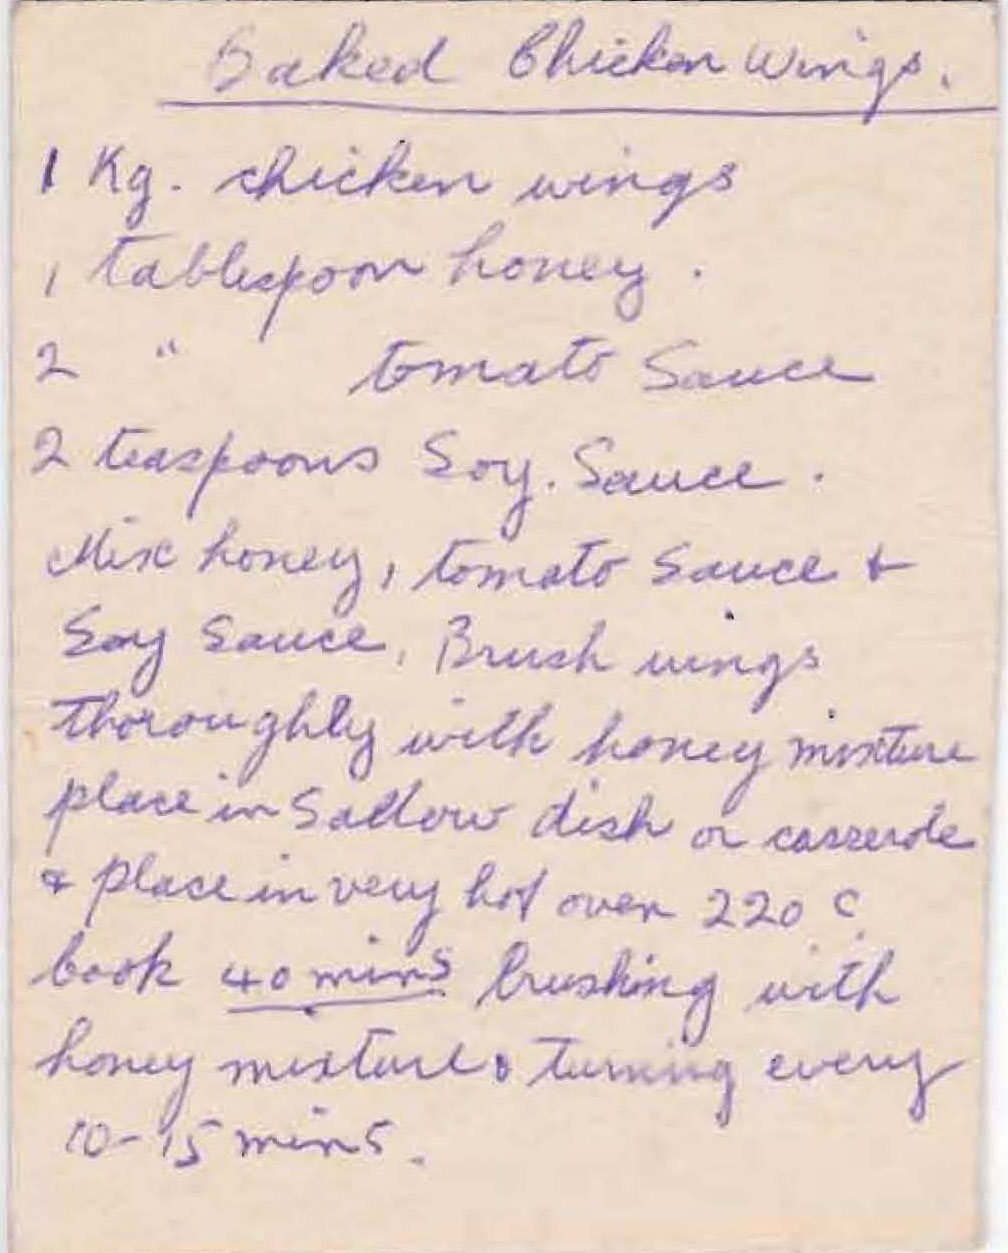 Baked Chicken Wings.
1 Kg. chicken wings
1 tablespoon honey.
2 " tomato Sauce
2 teaspoons Soy. Sauce.
Mix honey, tomato Sauce &
Soy Sauce, Brush wings
thoroughly with honey mixture
place in Sallow dish or casserole
& place in very hot oven 220 C
Cook 40 mins brushing with
honey mixture & turning every
10-15 mins.